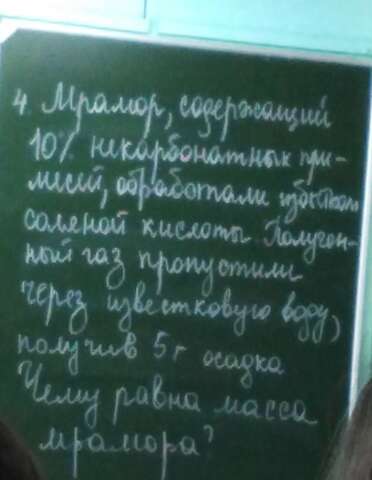 4. Мрамор, содержащий
10% некарбонатных при-
месей, обработали избытком
соляной кислоты. Получен-
ный газ пропустили
через известковую воду,
получив 5 г осадка
Чему равна масса
мрамора?